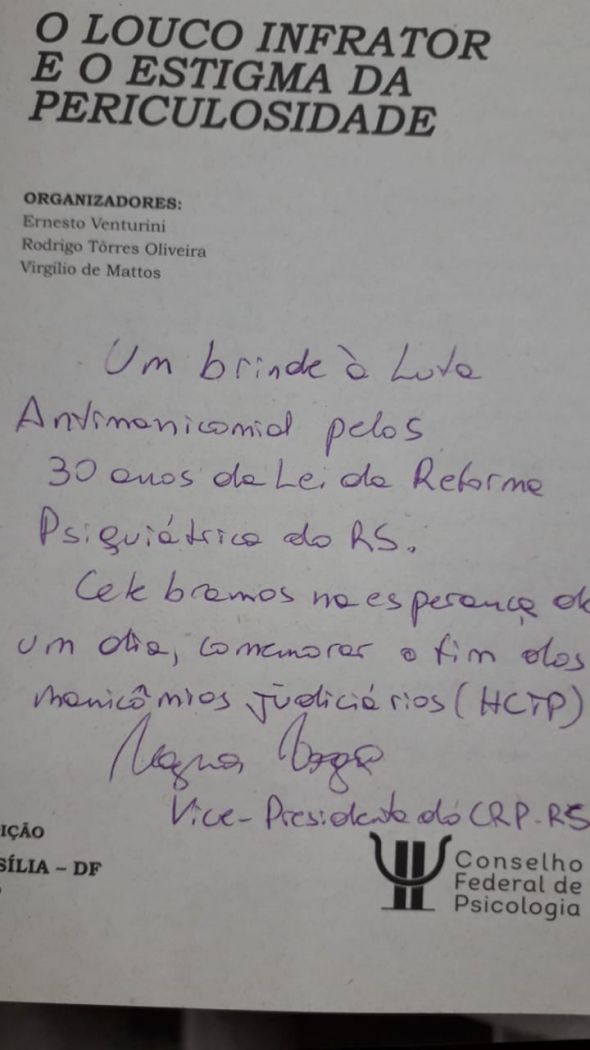 O LOUCO INFRATOR
E O ESTIGMA DA
PERICULOSIDADE
ORGANIZADORES:
Ernesto Venturini
Rodrigo Tôrres Oliveira
Virgílio de Mattos
Um brinde à Luta
Antimanicomial pelos
30 anos da Lei da Reforma
Psiquiátrica do RS.
Celebramos na esperança de
um dia, comemorar o fim dos
manicômios judiciários (HCTP)
Vice-Presidente do CRP-RS
IÇÃO
SÍLIA – DF
Conselho
Federal de
Psicologia